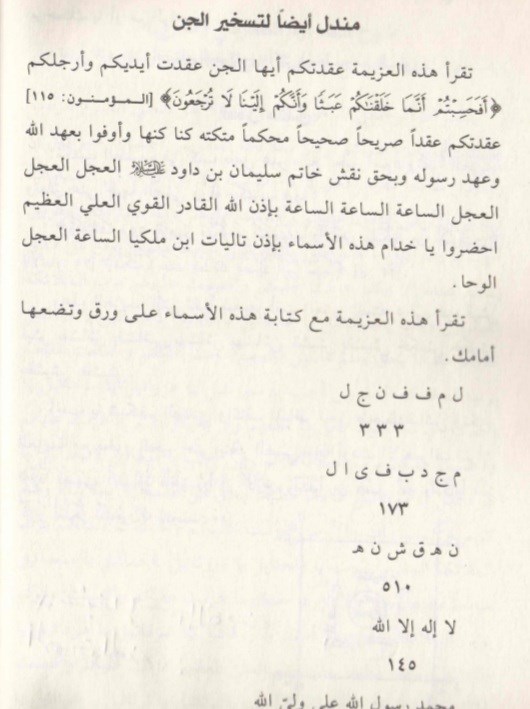 مندل أيضاً لتسخير الجن
تقرأ هذه العزيمة عقدتكم أيها الجن عقدت أيديكم وأرجلكم
﴿أَفَحَسِبْتُمْ أَنَّمَا خَلَقْنَاكُمْ عَبَثًا وَأَنَّكُمْ إِلَيْنَا لَا تُرْجَعُونَ﴾ [الـمـؤمـنـون: ١١٥]
عقدتكم عقداً صريحاً صحيحاً محكماً متكته كنا كنها وأوفوا بعهد الله
وعهد رسوله وبحق نقش خاتم سليمان بن داود العجل العجل
العجل الساعة الساعة الساعة بإذن الله القادر القوي العلي العظيم
احضروا يا خدام هذه الأسماء بإذن تاليات ابن ملكيا الساعة العجل
الوحا.
تقرأ هذه العزيمة مع كتابة هذه الأسماء على ورق وتضعها
أمامك.
ل م ف ف ن ج ل
٣ ٣ ٣
م ج د ب ف ي ا ل
١٧٣
ن هـ ق ش ن هـ
٥١٠
لا إله إلا الله
١٤٥
محمد رسول الله علي وليّ الله